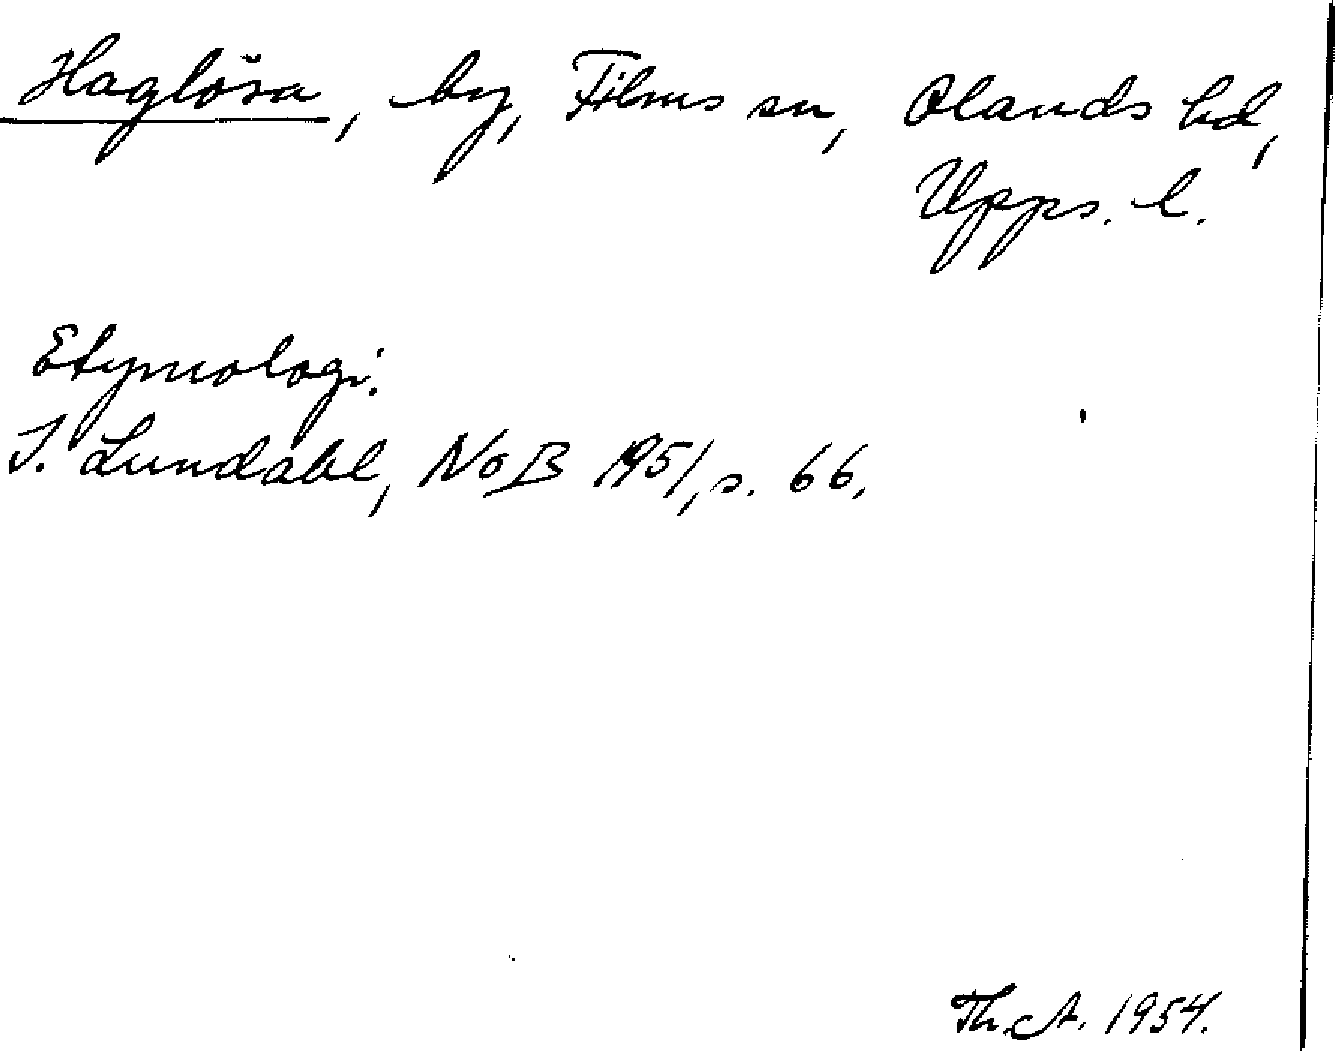 Haglösa, by, Films sn, Olands hd,
Upps. l.
Etymologi.
I. Lundahl, NoB 1951, s. 66.
Th. A. 1954.